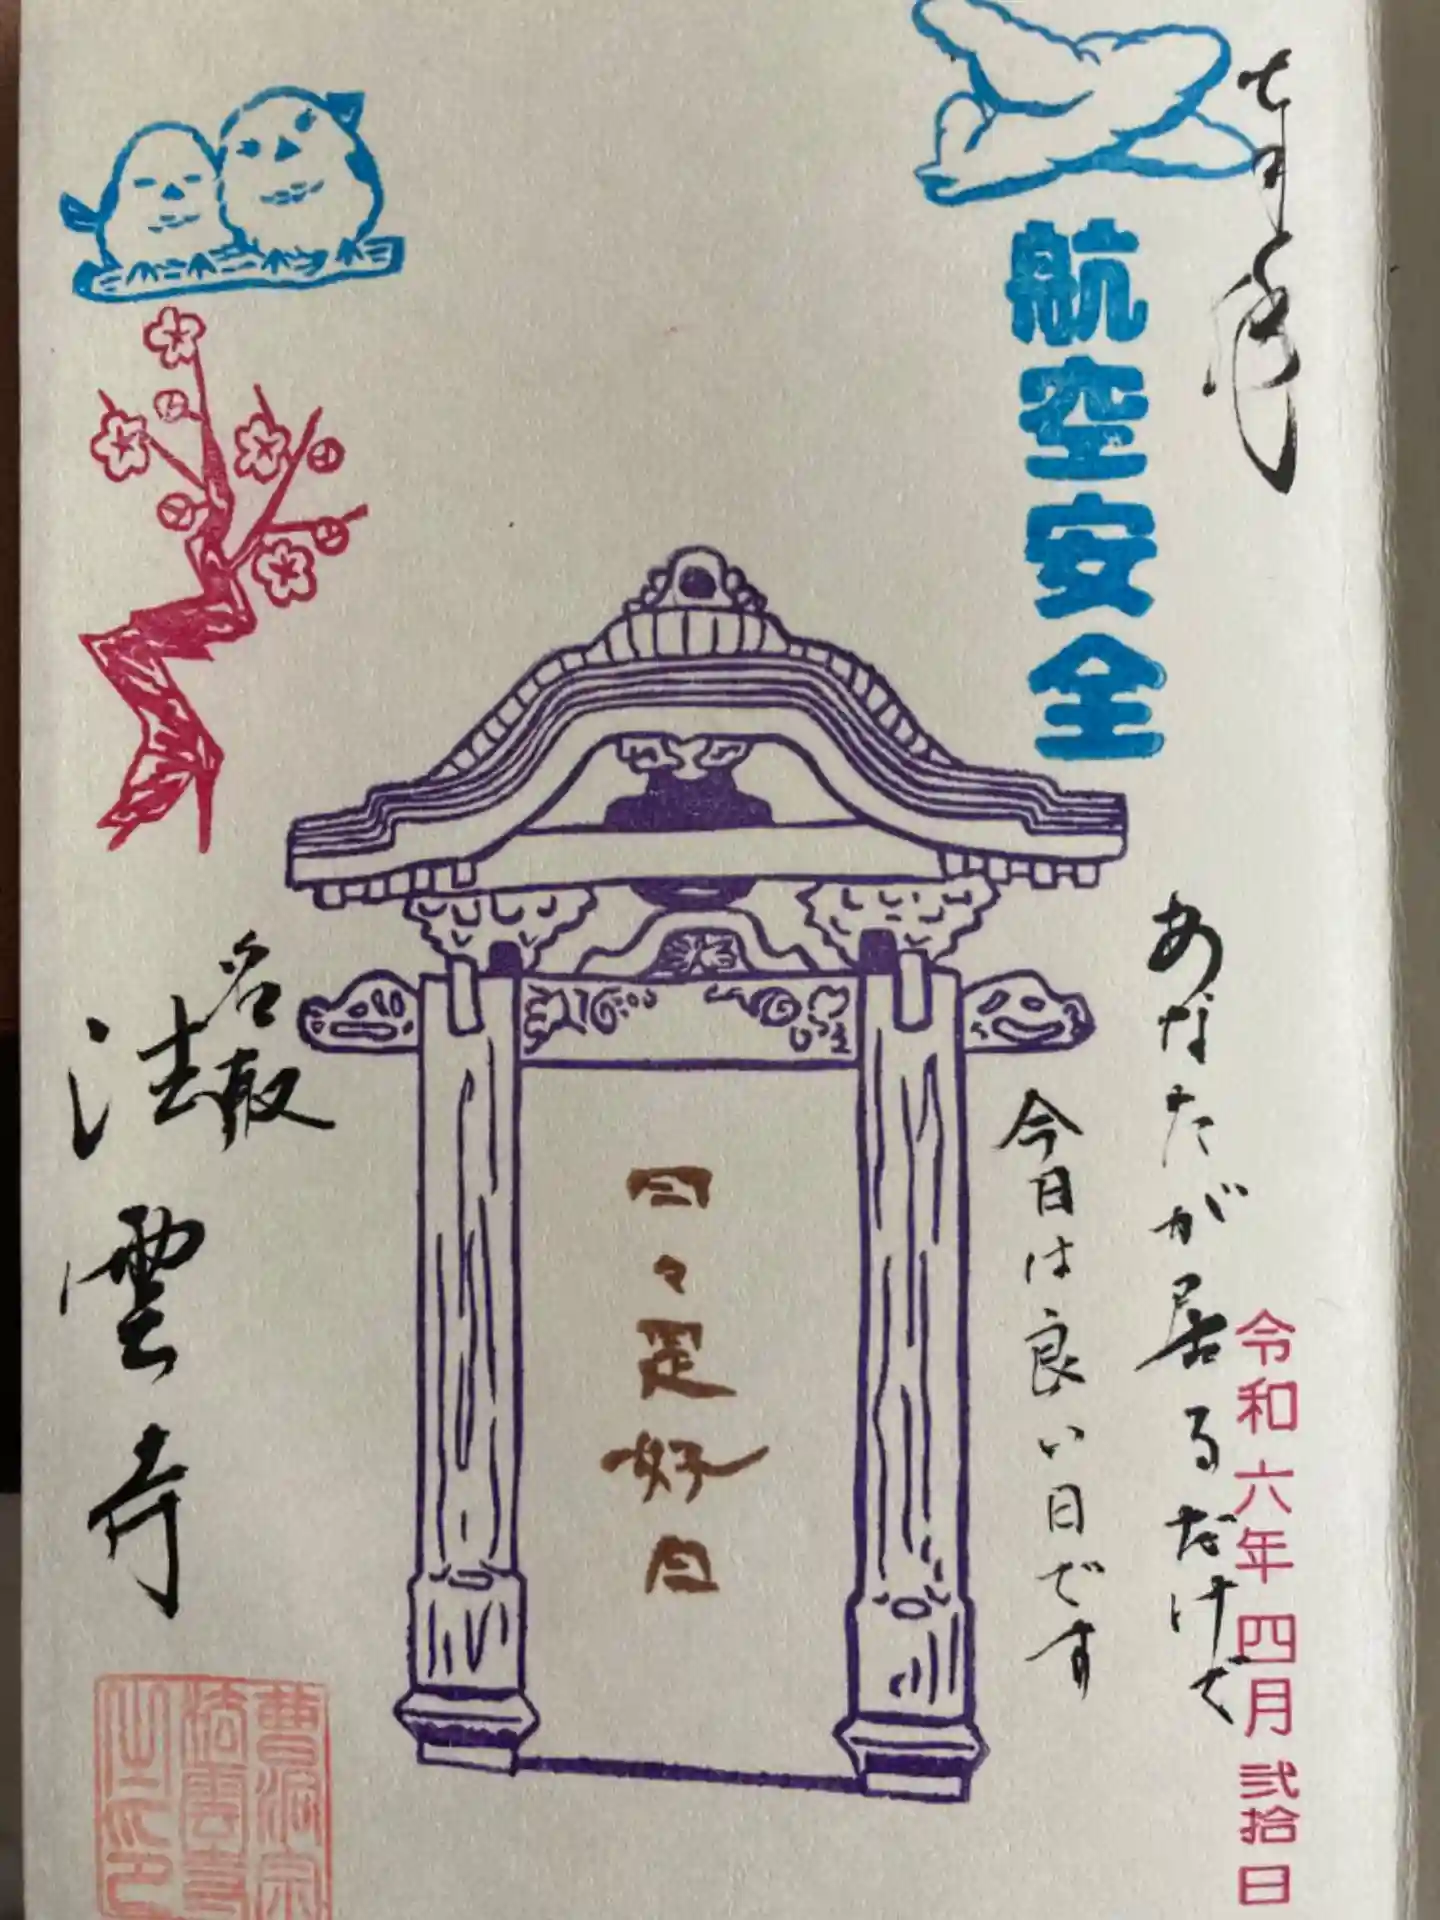 奉拝
航空安全
令和六年四月弐拾日
あなたが居るだけで
今日は良い日です
日々是好日
名取
法雲寺
曹洞宗
法雲寺
之印